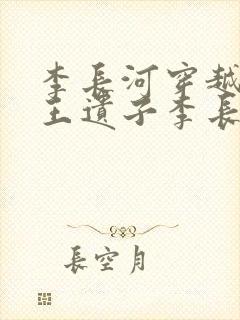 李長河穿越
王遺子李長
長空月